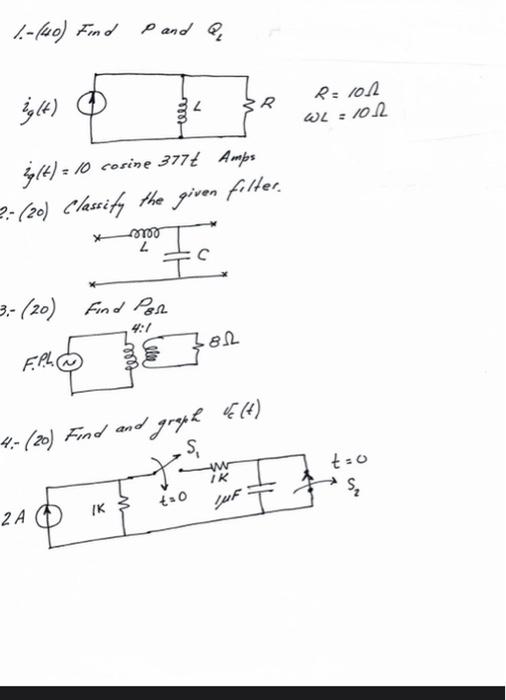 1.-(40) Find P and Q_L
i_g(t)
L
R
R = 10Ω
ωL = 10Ω
i_g(t) = 10 cosine 377t Amps
2.-(20) Classify the given filter.
L
C
3.-(20) Find P_8Ω
4:1
8Ω
F.P.L.
4.-(20) Find and graph v_c(t)
S_1
t=0
1K
t=0
1μF
S_2
1K
2 A